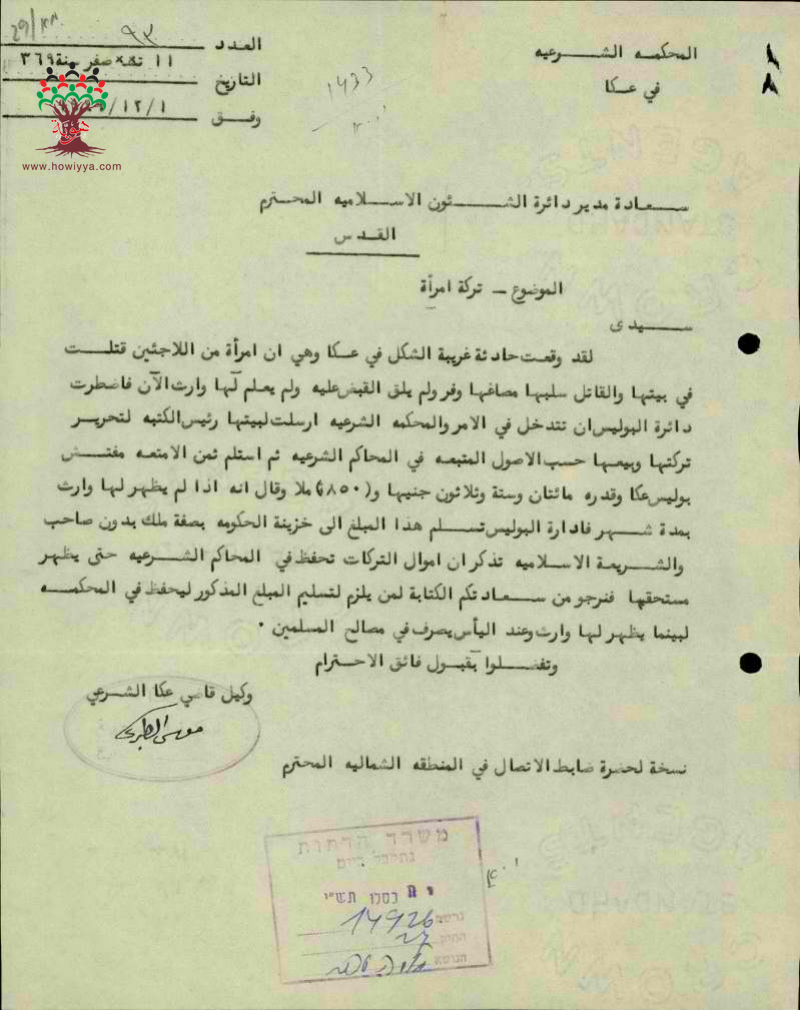 المحكمه الشرعيه
في عكا
العدد ٩٣
التاريخ ١١ صفر سنة ٣٦٩
وفق /١٢/١
1433
هوية
www.howiyya.com
سعادة مدير دائرة الشئون الاسلاميه المحترم
القدس
الموضوع — تركة امرأة
سيدى
لقد وقعت حادثة غريبة الشكل في عكا وهي ان امرأة من اللاجئين قتلت
في بيتها والقاتل سلبها مصاغها وفر ولم يلق القبض عليه ولم يعلم لها وارث الآن فاضطرت
دائرة البوليس ان تتدخل في الامر والمحكمه الشرعيه ارسلت لبيتها رئيس الكتبه لتحرير
تركتها وبيعها حسب الاصول المتبعه في المحاكم الشرعيه ثم استلم ثمن الامتعه مفتش
بوليس عكا وقدره مائتان وستة وثلاثون جنيها و(٨٥٠) ملا وقال انه اذا لم يظهر لها وارث
بمدة شهر فادارة البوليس تسلم هذا المبلغ الى خزينة الحكومه بصفة ملك بدون صاحب
والشريعة الاسلاميه تذكر ان اموال التركات تحفظ في المحاكم الشرعيه حتى يظهر
مستحقها فنرجو من سعادتكم الكتابة لمن يلزم لتسليم المبلغ المذكور ليحفظ في المحكمه
لبينما يظهر لها وارث وعند اليأس يصرف في مصالح المسلمين .
وتفضلوا بقبول فائق الاحترام
وكيل قاضي عكا الشرعي
موسى الطبري
نسخة لحضرة ضابط الاتصال في المنطقه الشماليه المحترم
משרד הדתות
נתקבל ביום
כסלו תש"י
14926
27